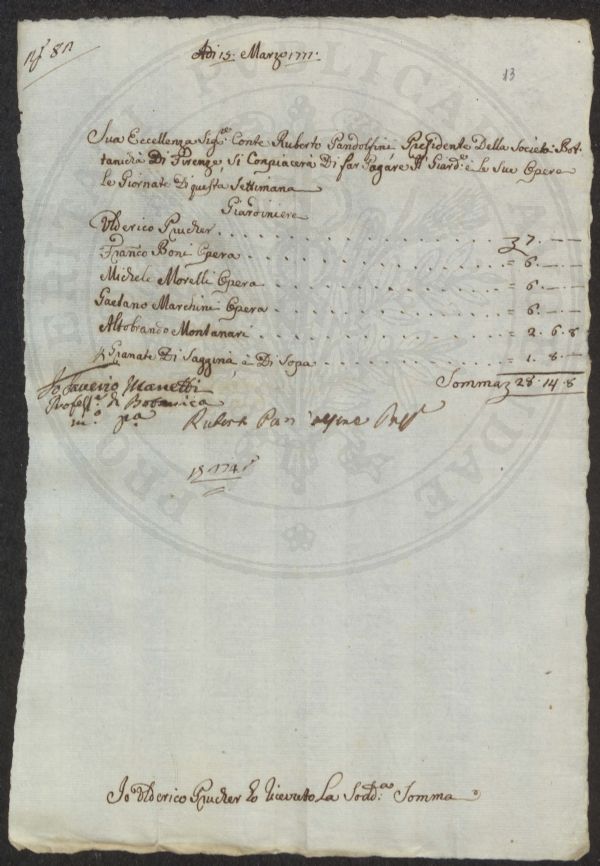 Adi 15: Marzo 1777:
13
Sua Eccellenza Sig.re Conte Ruberto Pandolfini Presidente Della Societa Bot-
tanicha Di Firenze, Si Conpiacerà Di far Pagare Il Giard.e e Le Sue Opera
Le Giornate Di questa Settimana
Giardiniere
Ulderico Prucher . . . . . . . . . . 7. — —
Franco Boni Opera . . . . . . . . . = 6. — —
Michele Morelli Opera . . . . . . . . = 6. — —
Gaetano Marchini Opera . . . . . . . . = 6. — —
Altobrando Montanari . . . . . . . . = 2. 6. 8
Granate Di Saggina, e Di Sopa . . . . . = 1. 8. —
Somma 28. 14. 8
Io Saverio Manetti
Profess.e di Botanica
m.o p.a
Ruberto Pandolfini
Io Ulderico Prucher ho ricevuto La Sodd.a Somma
PRO
PUBLICAE